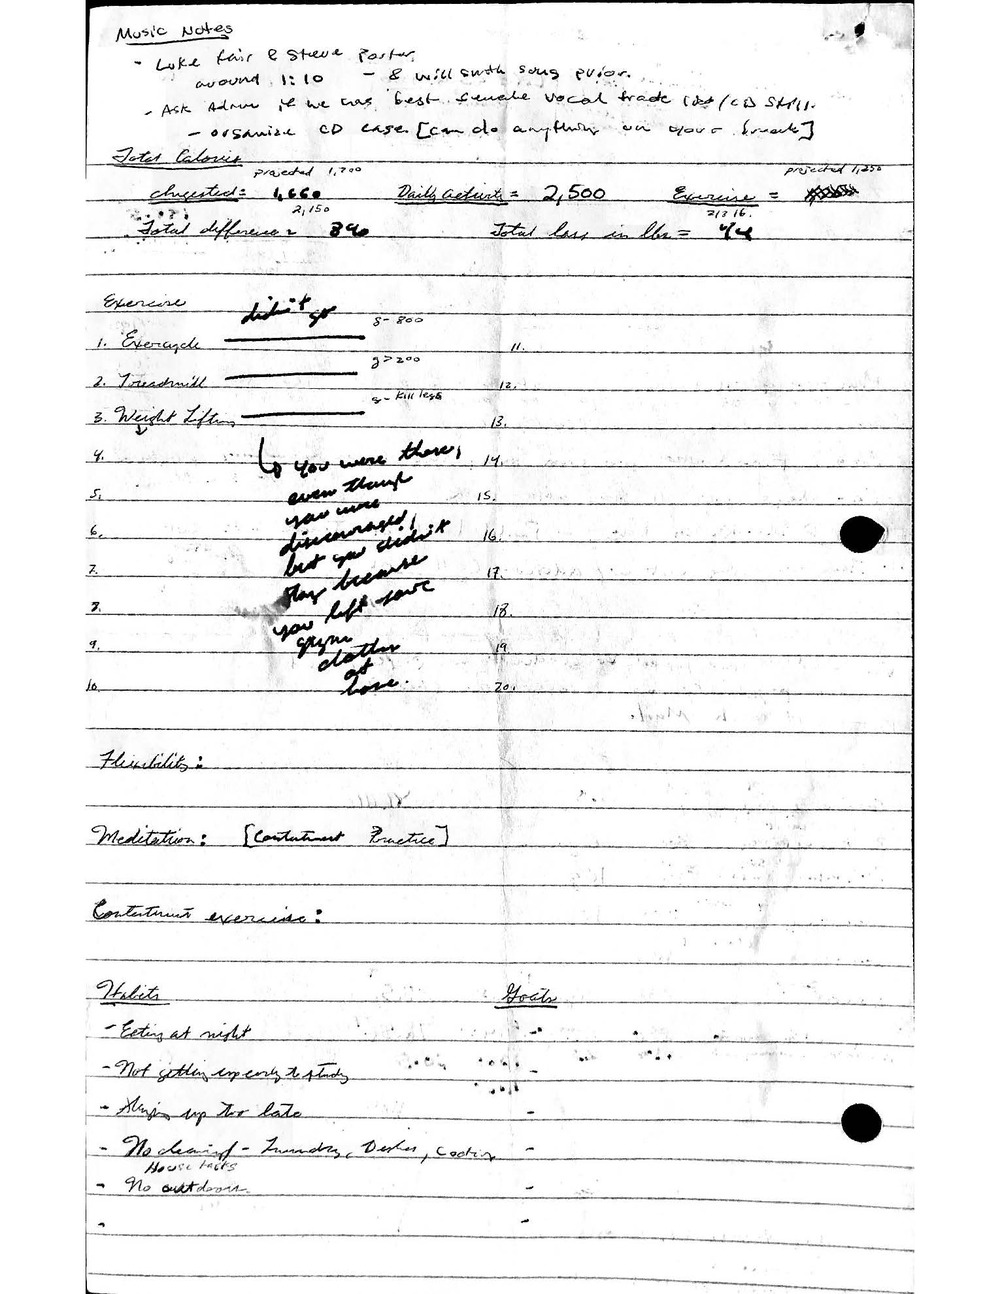 Music Notes
- Luke Fair & Steve Porter
around 1:10 - & will smith song prior.
- Ask Adam if we has best female vocal trade
- organize CD cases [can do anything on your break]
Total Calories
projected 1,700 projected 1,250
Ingested = 1,660 Daily activity = 2,500 Exercise =
2,150
Total difference 840 Total loss in lbs =
Exercise
didn't go
g- 800
1. Exercycle 11.
g> 200
2. Treadmill 12.
g- kill legs
3. Weight Lifting 13.
4. 14.
you were there,
even though
5. 15.
you were
discouraged,
6. 16.
but you didn't
7. 17.
stay because
8. 18.
you left your
gym
9. 19.
clothes
at
10. 20.
home.
Flexibility:
Meditation: [Contentment Practice]
Contentment exercise:
Habits Goals
- Eating at night -
- Not getting up early to study -
- Staying up too late -
- No cleaning - Laundry, Dishes, Cooking -
House tasks
- No outdoors. -
- -